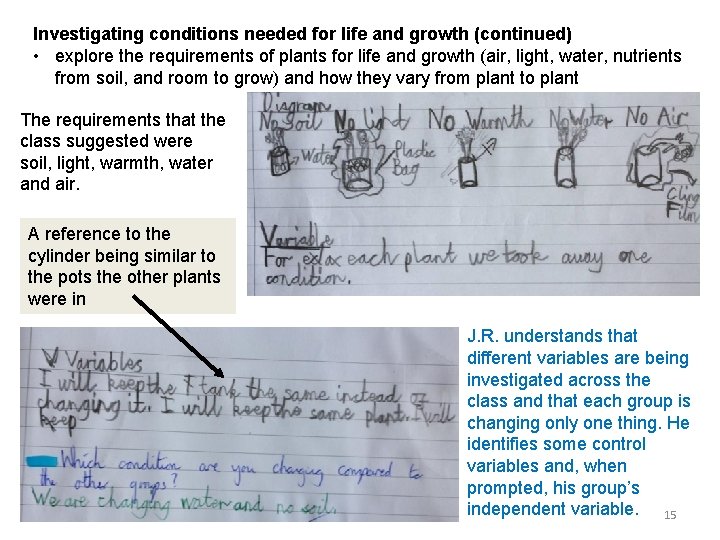 Investigating conditions needed for life and growth (continued)
• explore the requirements of plants for life and growth (air, light, water, nutrients
from soil, and room to grow) and how they vary from plant to plant
The requirements that the
class suggested were
soil, light, warmth, water
and air.
Diagram
No Soil No light No Warmth No Water No Air
Water
Plastic
Bag
Cling
Film
Variable
For each plant we took away one
condition.
A reference to the
cylinder being similar to
the pots the other plants
were in
Variables
I will keep the tank the same instead of
changing it. I will keep the same plant. I will
keep
Which condition are you changing compared to
the other groups?
We are changing water and no soil.
J.R. understands that
different variables are being
investigated across the
class and that each group is
changing only one thing. He
identifies some control
variables and, when
prompted, his group's
independent variable.
15